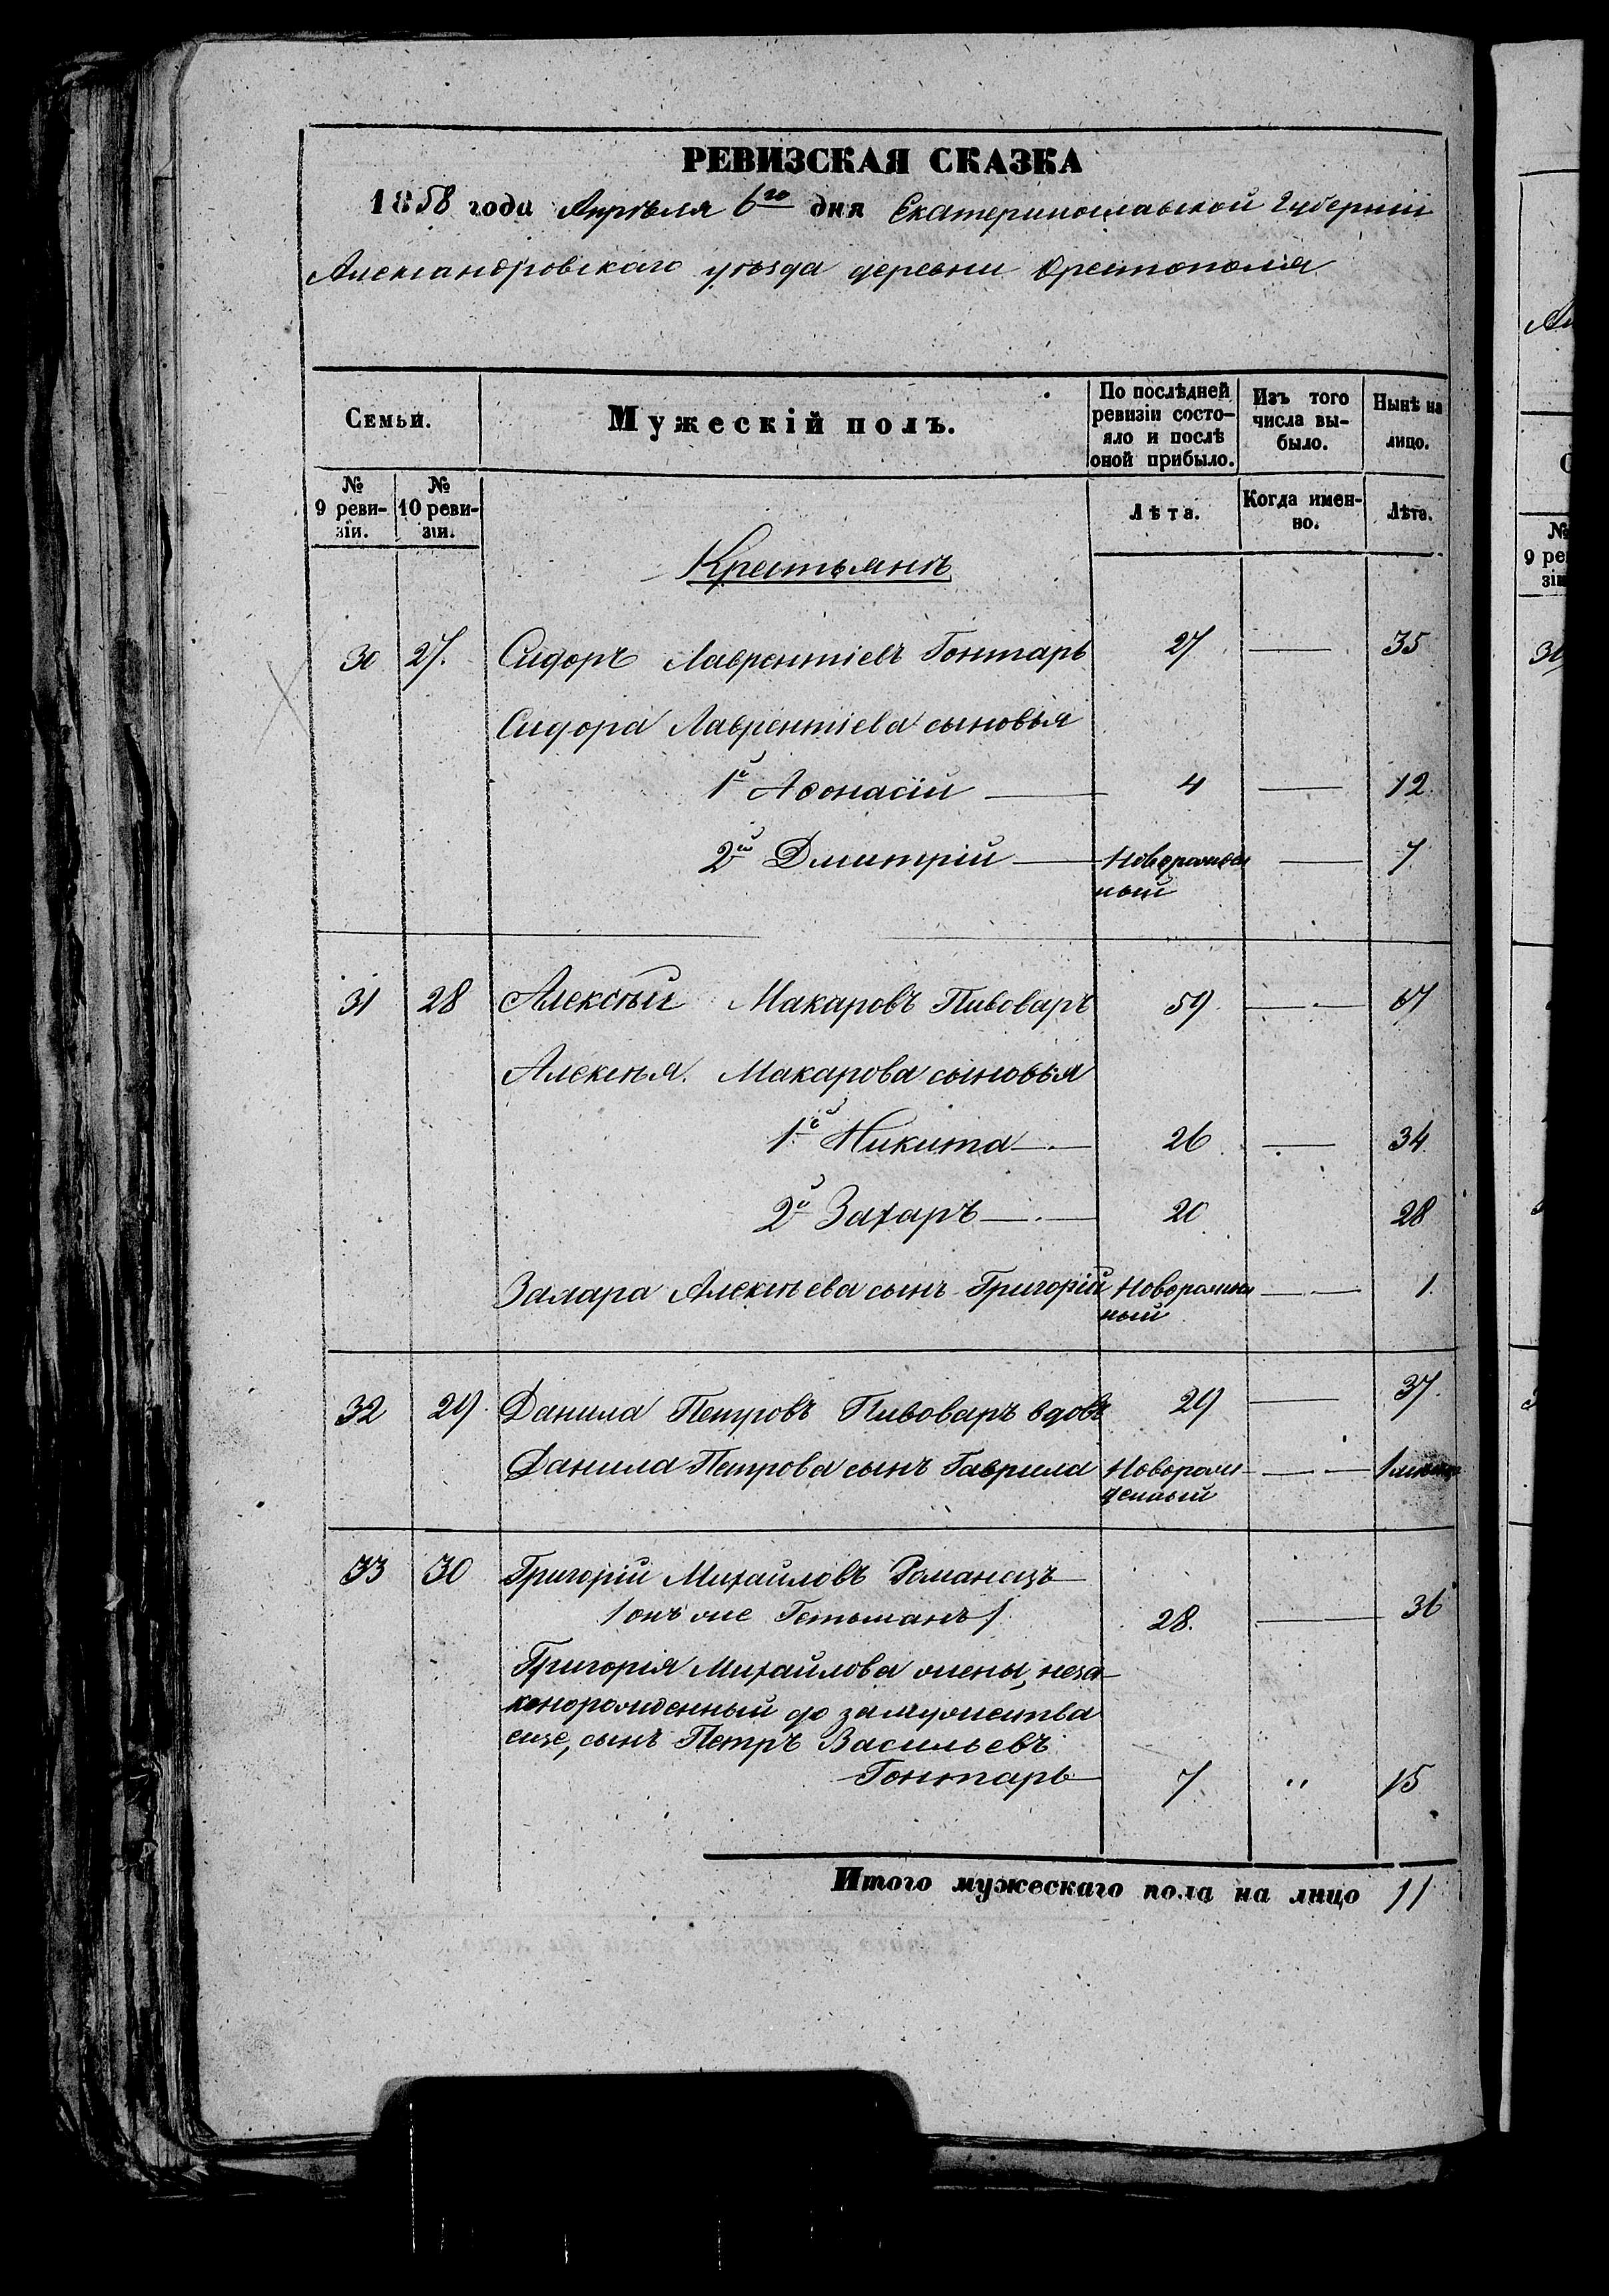 РЕВИЗСКАЯ СКАЗКА
1858 года Апрѣля 6го дня Екатеринославской Губерніи
Александровскаго уѣзда деревни Орестополя
Семьи. Мужескій полъ. По послѣдней ревизіи состояло и послѣ оной прибыло. Изъ того числа выбыло. Нынѣ на лицо.
№ 9 ревизіи. № 10 ревизіи. Лѣта. Когда именно. Лѣта.
Крестьянъ
30 27. Сидоръ Лаврентіевъ Гонтарь 27 — 35
Сидора Лаврентіева сыновья
1й Афонасій — 4 — 12.
2й Дмитрій — Новорожден
ный — 7
31 28 Алексѣй Макаровъ Пивоваръ 59 — 67
Алексѣя Макарова сыновья
1й Никита — 26 — 34
2й Захаръ — 20 28
Захара Алексѣева сынъ Григорій Новорожден
ный — 1.
32 29. Данила Петровъ Пивоваръ вдовъ 29 — 37.
Данила Петрова сынъ Гаврила Новорож
денный — 1
33 30 Григорій Михайловъ Романецъ
/онъ же Гетьманъ/ 28. — 36
Григорія Михайлова жены, неза
конорожденный до замужества
еще, сынъ Петръ Васильевъ
Гонтарь 7 " 15
Итого мужескаго пола на лицо 11